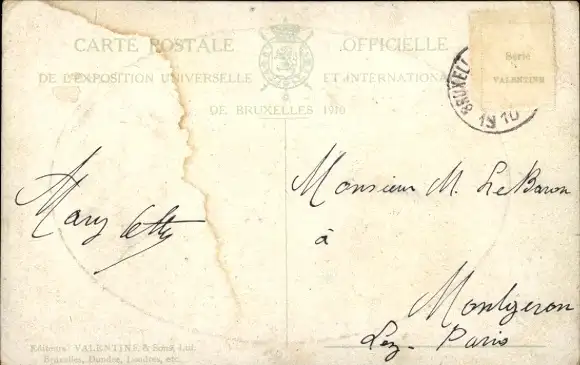 CARTE POSTALE OFFICIELLE
DE L'EXPOSITION UNIVERSELLE ET INTERNATIONALE
DE BRUXELLES 1910
Série
VALENTINE
BRUXELL
1910
Mary
Monsieur M. LeBaron
à
Montgeron
Lez-Paris
Editeurs: VALENTINE & Sons, Ltd.
Bruxelles, Dundee, Londres, etc.